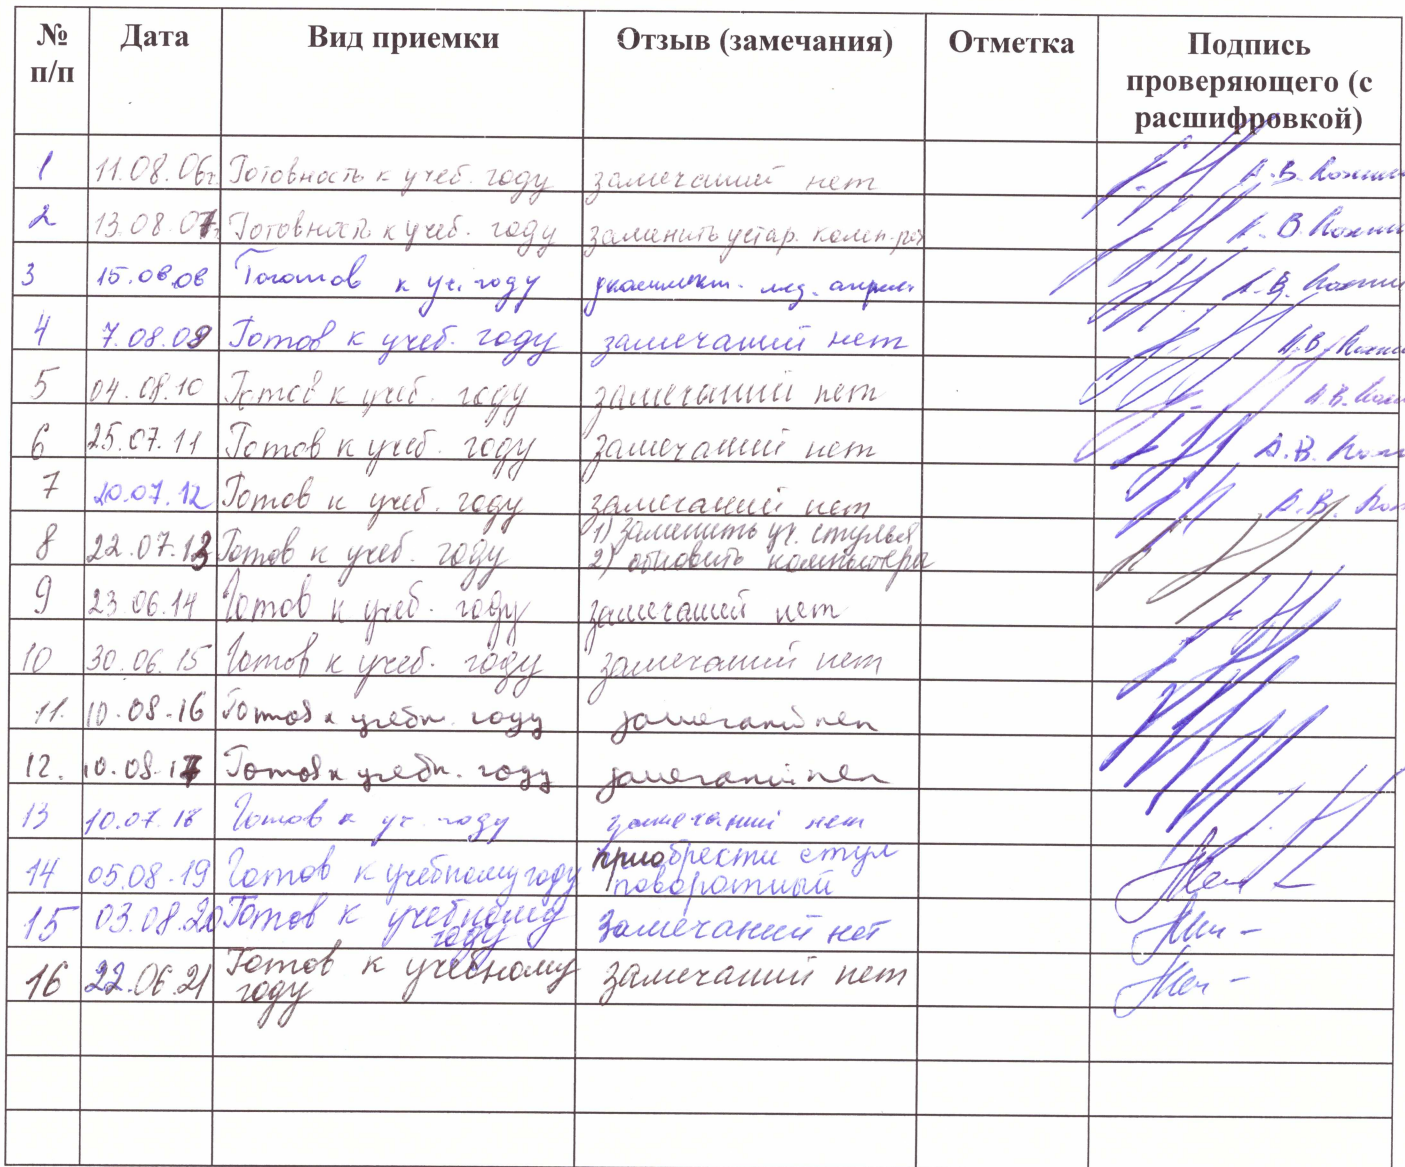 № п/п Дата Вид приемки Отзыв (замечания) Отметка Подпись проверяющего (с расшифровкой)
1 11.08.06г. Готовность к учеб. году замечаний нет А.В.
2 13.08.07г. Готовность к учеб. году заменить устар. А.В.
3 15.08.08 Готов к уч. году А.В.
4 7.08.09 Готов к учеб. году замечаний нет А.В.
5 04.08.10 Готов к учеб. году замечаний нет А.В.
6 25.07.11 Готов к учеб. году замечаний нет А.В.
7 20.07.12 Готов к учеб. году замечаний нет А.В.
8 22.07.13 Готов к учеб. году 1) заменить уч. стулья
2) обновить компьютеры
9 23.06.14 Готов к учеб. году замечаний нет
10 30.06.15 Готов к учеб. году замечаний нет
11. 10.08.16 Готов к учебн. году замечаний нет
12. 10.08.17 Готов к учебн. году замечаний нет
13 10.07.18 Готов к уч. году замечаний нет
14 05.08.19 Готов к учебному году приобрести стул
поворотный
15 03.08.20 Готов к учебному
году замечаний нет
16 22.06.21 Готов к учебному
году замечаний нет